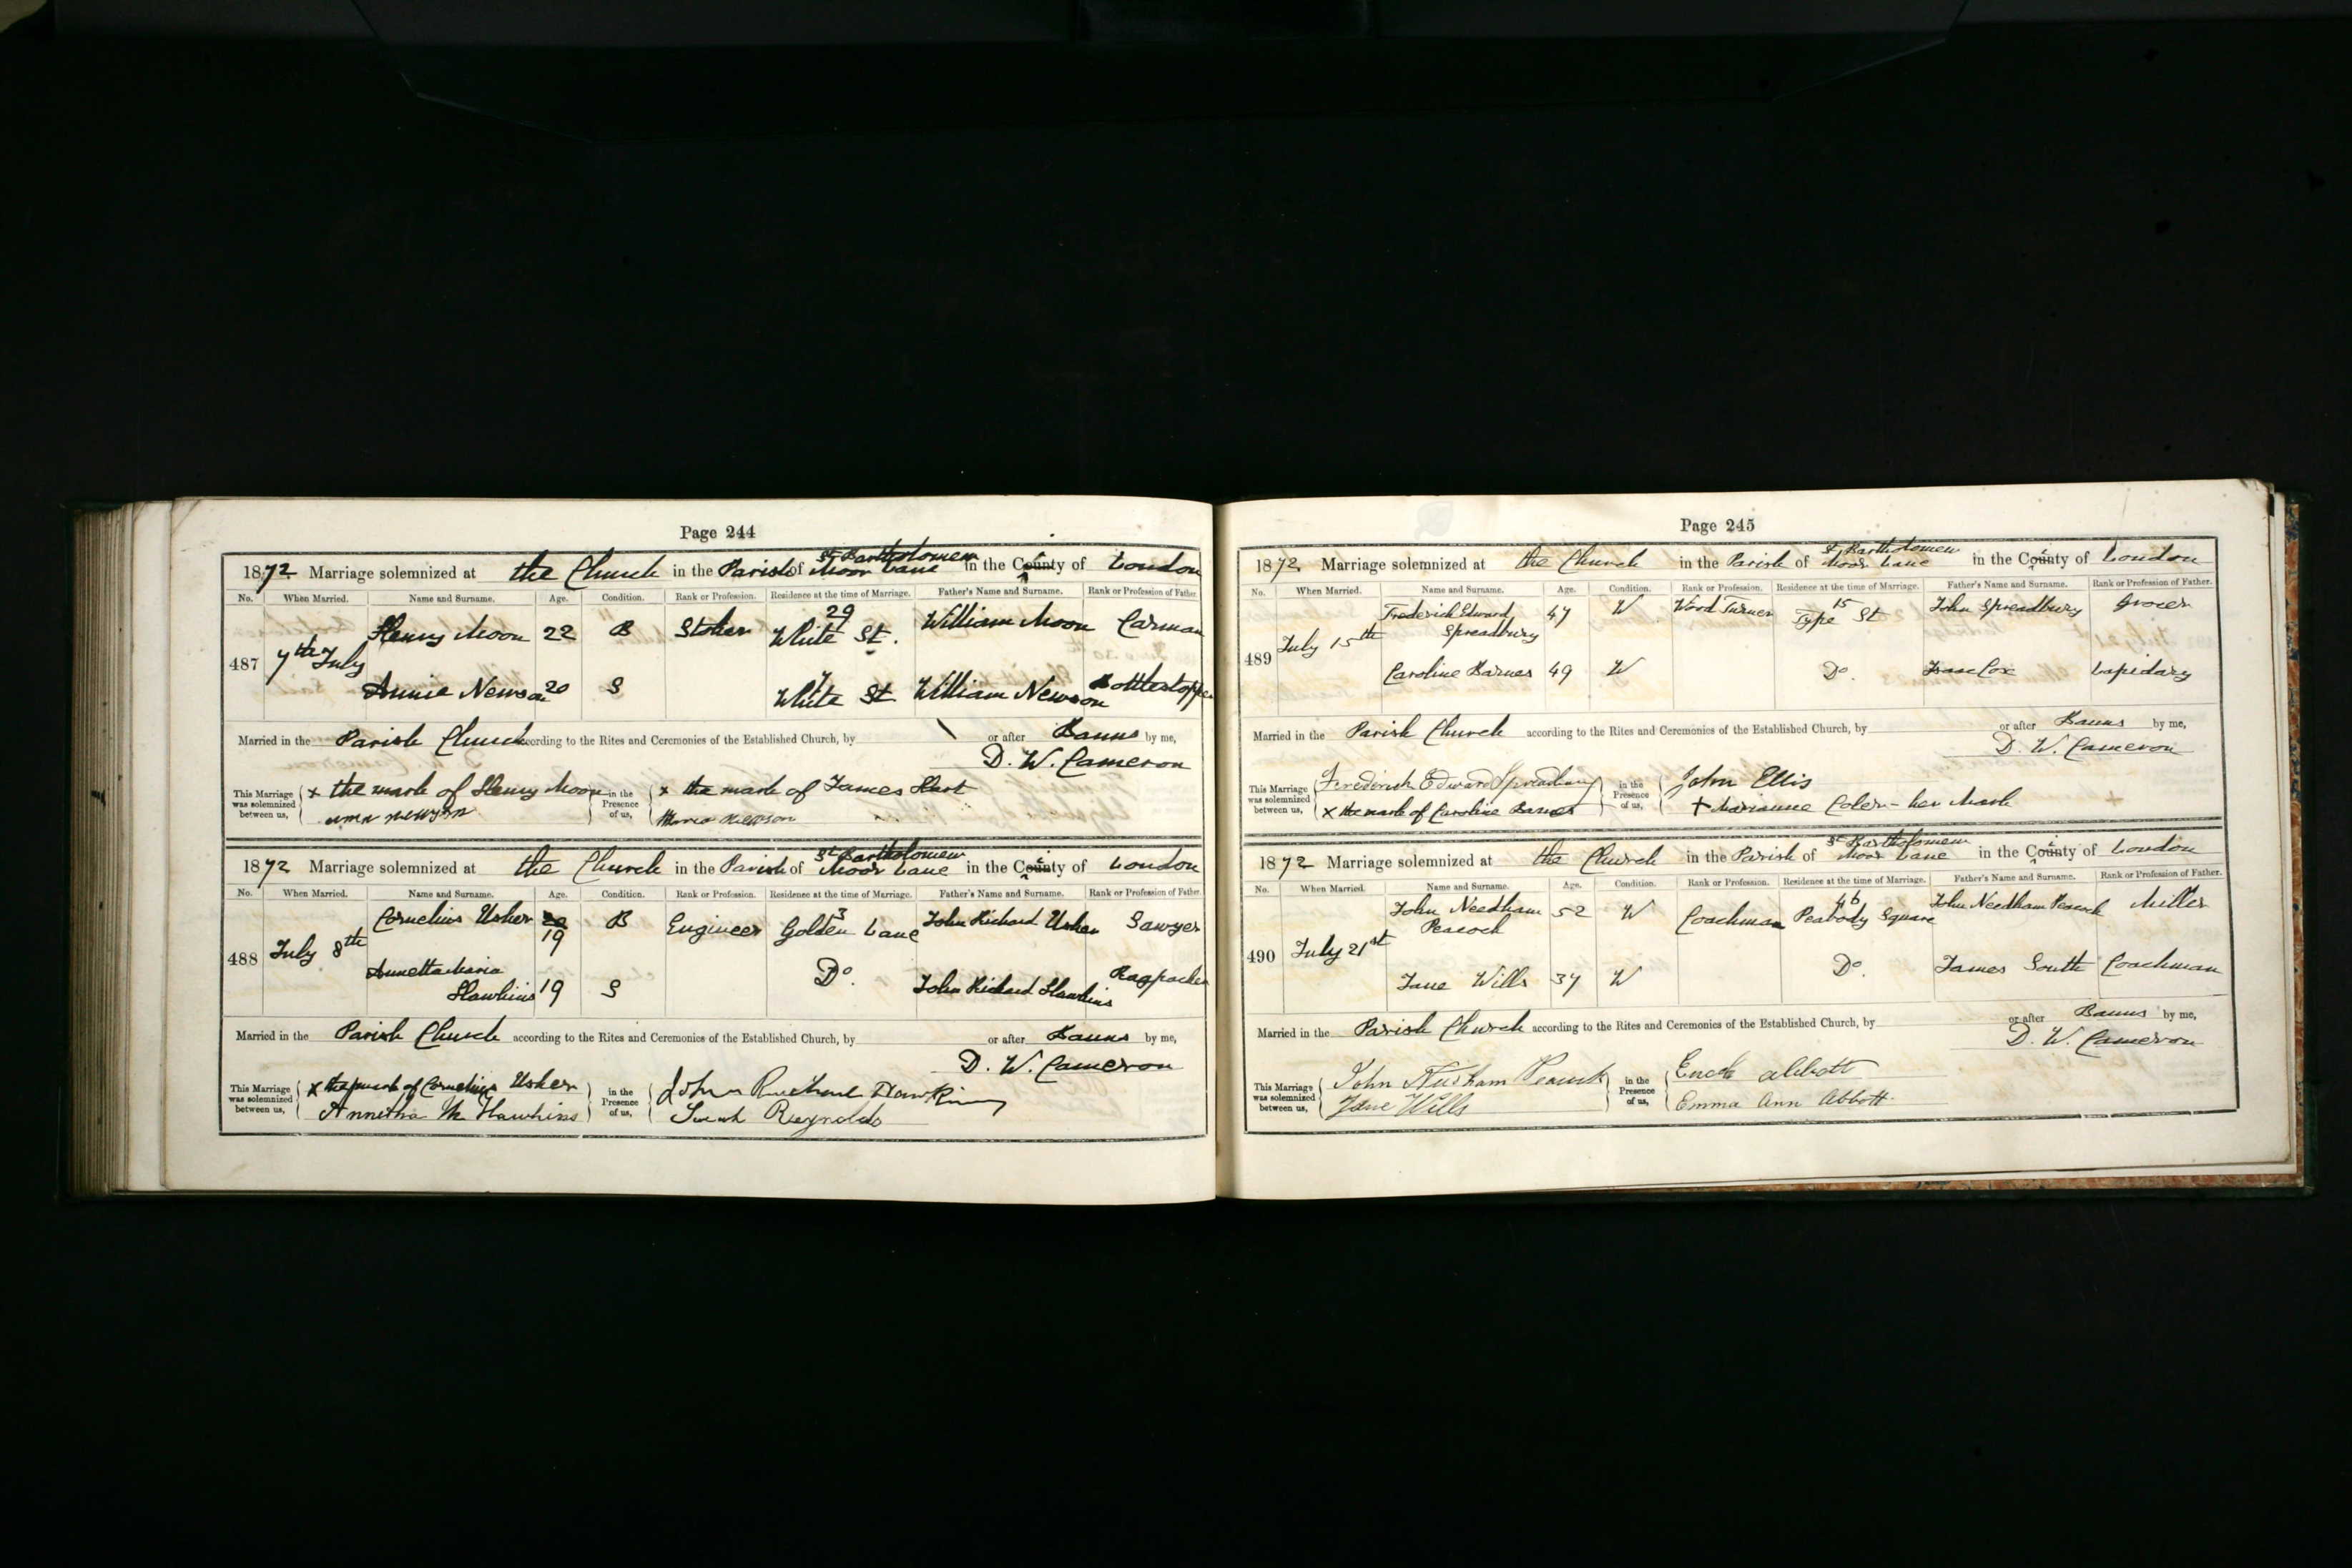 Page 244
St Bartholomew
1872 Marriage solemnized at the Church in the Parish of Moor Lane in the County of London
No. When Married. Name and Surname. Age. Condition. Rank or Profession. Residence at the time of Marriage. Father's Name and Surname. Rank or Profession of Father.
29
487 7th July Henry Moon 22 B Stoker White St. William Moon Carman
7
Annie Newson 20 S White St William Newson Bottlestopper
Married in the Parish Church according to the Rites and Ceremonies of the Established Church, by or after Banns by me,
D. W. Cameron
This Marriage was solemnized between us, x the mark of Henry Moon in the Presence of us, x the mark of James Hurt
newson
St Bartholomew
1872 Marriage solemnized at the Church in the Parish of Moor Lane in the County of London
No. When Married. Name and Surname. Age. Condition. Rank or Profession. Residence at the time of Marriage. Father's Name and Surname. Rank or Profession of Father.
3
488 July 8th Cornelius Usher 20 19 B Engineer Golden Lane John Richard Usher Sawyer
Annetta Maria
Hawkins 19 S Do. John Richard Hawkins Ragpacker
Married in the Parish Church according to the Rites and Ceremonies of the Established Church, by or after Banns by me,
D. W. Cameron
This Marriage was solemnized between us, x the mark of Cornelius Usher in the Presence of us, John Hawkins
Annetha M Hawkins Sarah Reynolds
Page 245
St Bartholomew
1872 Marriage solemnized at the Church in the Parish of Moor Lane in the County of London
No. When Married. Name and Surname. Age. Condition. Rank or Profession. Residence at the time of Marriage. Father's Name and Surname. Rank or Profession of Father.
15
489 July 15th Frederick Edward Spreadbury 47 W Wood Turner Type St John Spreadbury Grocer
Caroline Barnes 49 W Do. Isaac Cox Lapidary
Married in the Parish Church according to the Rites and Ceremonies of the Established Church, by or after Banns by me,
D. W. Cameron
This Marriage was solemnized between us, Frederick Edward Spreadbury in the Presence of us, John Ellis
x the mark of Caroline Barnes + Marianne Coler - her Mark
St Bartholomew
1872 Marriage solemnized at the Church in the Parish of Moor Lane in the County of London
No. When Married. Name and Surname. Age. Condition. Rank or Profession. Residence at the time of Marriage. Father's Name and Surname. Rank or Profession of Father.
46
490 July 21st John Needham Peacock 52 W Coachman Peabody Square John Needham Peacock Miller
Jane Wills 37 W Do. James South Coachman
Married in the Parish Church according to the Rites and Ceremonies of the Established Church, by or after Banns by me,
D. W. Cameron
This Marriage was solemnized between us, John Peacock in the Presence of us, Enoch Abbott
Jane Wills Emma Ann Abbott